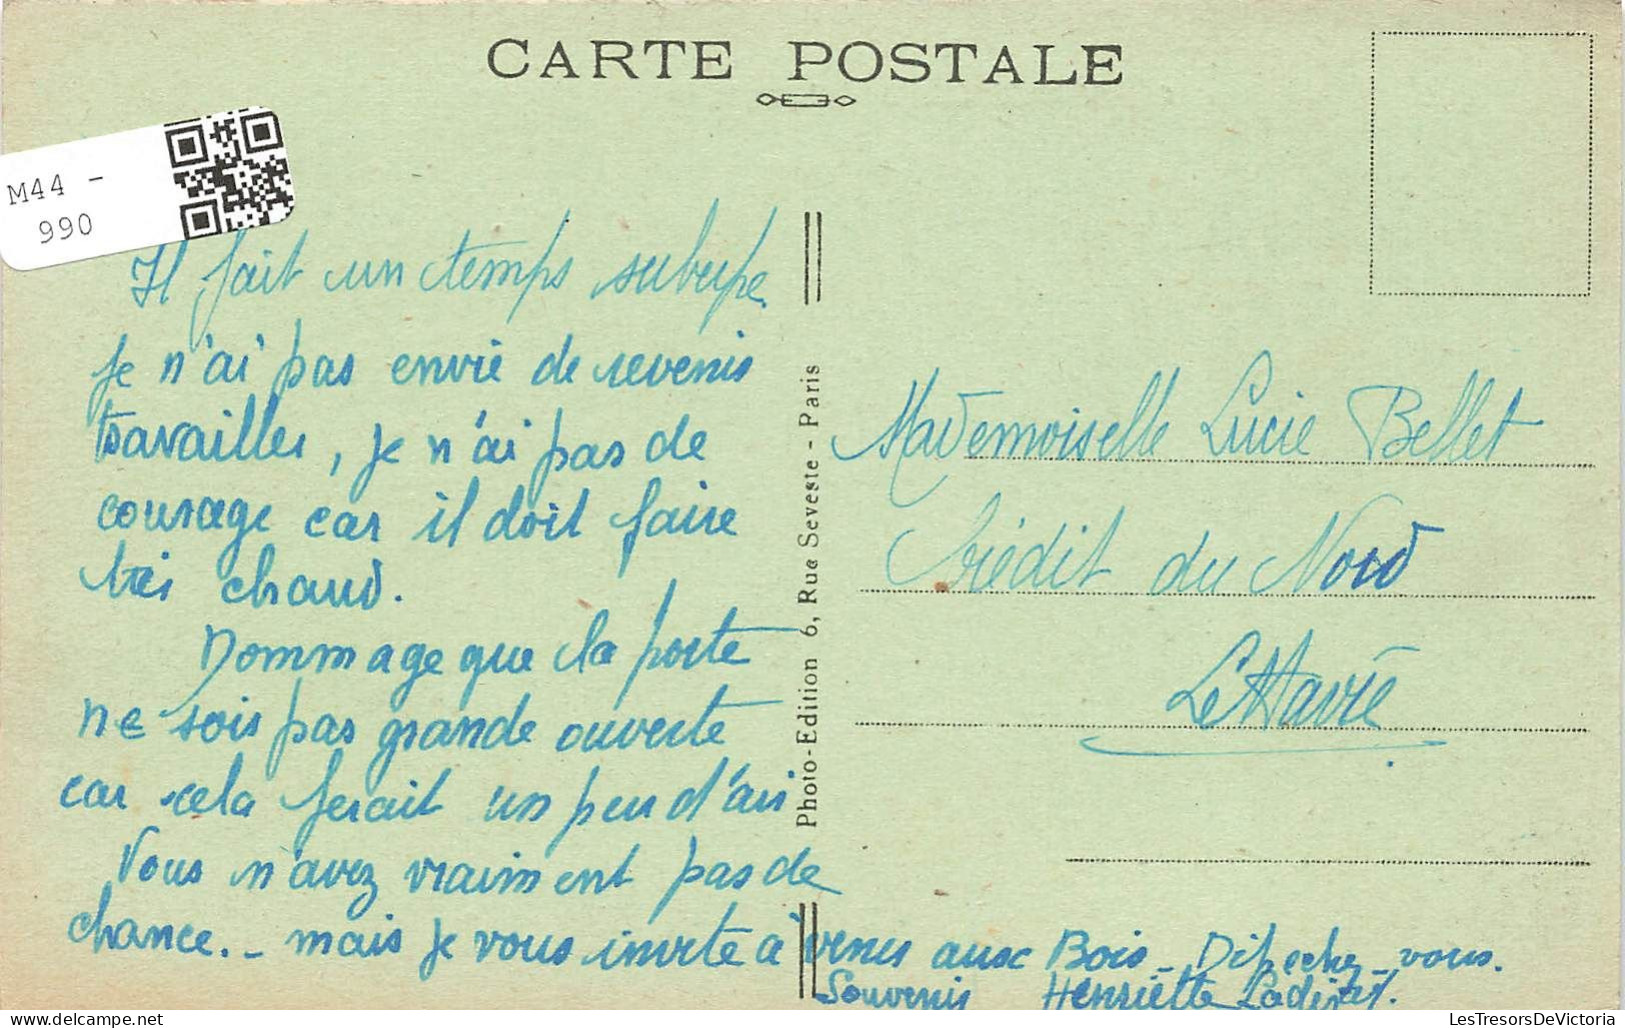 CARTE POSTALE
M44 -
990
Il fait un temps suberpe
Je n'ai pas envie de revenir
travailler, je n'ai pas de
courage car il doit faire
très chaud.
Dommage que la porte
ne sois pas grande ouverte
car cela ferait un peu d'air
Vous n'avez vraiment pas de
chance. - mais je vous invite à venir aux Bois - Dépechez-vous.
Souvenir Henriette
Photo-Edition 6, Rue Seveste - Paris
Mademoiselle Lucie Bellet
Crédit du Nord
Le Havre
LesTresorsDeVictoria